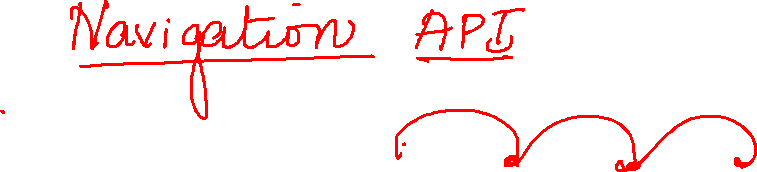 Navigation API